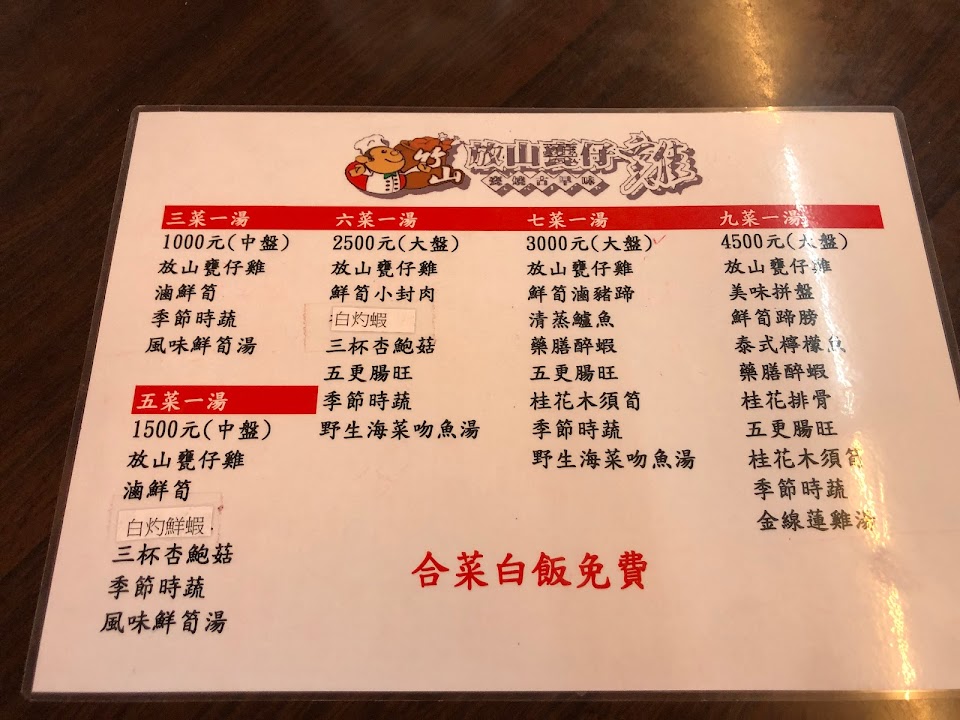 竹山
放山甕仔雞
窯燒古早味
三菜一湯
1000元(中盤)
放山甕仔雞
滷鮮筍
季節時蔬
風味鮮筍湯
五菜一湯
1500元(中盤)
放山甕仔雞
滷鮮筍
白灼鮮蝦
三杯杏鮑菇
季節時蔬
風味鮮筍湯
六菜一湯
2500元(大盤)
放山甕仔雞
鮮筍小封肉
白灼蝦
三杯杏鮑菇
五更腸旺
季節時蔬
野生海菜吻魚湯
七菜一湯
3000元(大盤)
放山甕仔雞
鮮筍滷豬蹄
清蒸鱸魚
藥膳醉蝦
五更腸旺
桂花木須筍
季節時蔬
野生海菜吻魚湯
九菜一湯
4500元(大盤)
放山甕仔雞
美味拼盤
鮮筍蹄膀
泰式檸檬魚
藥膳醉蝦
桂花排骨
五更腸旺
桂花木須筍
季節時蔬
金線蓮雞湯
合菜白飯免費